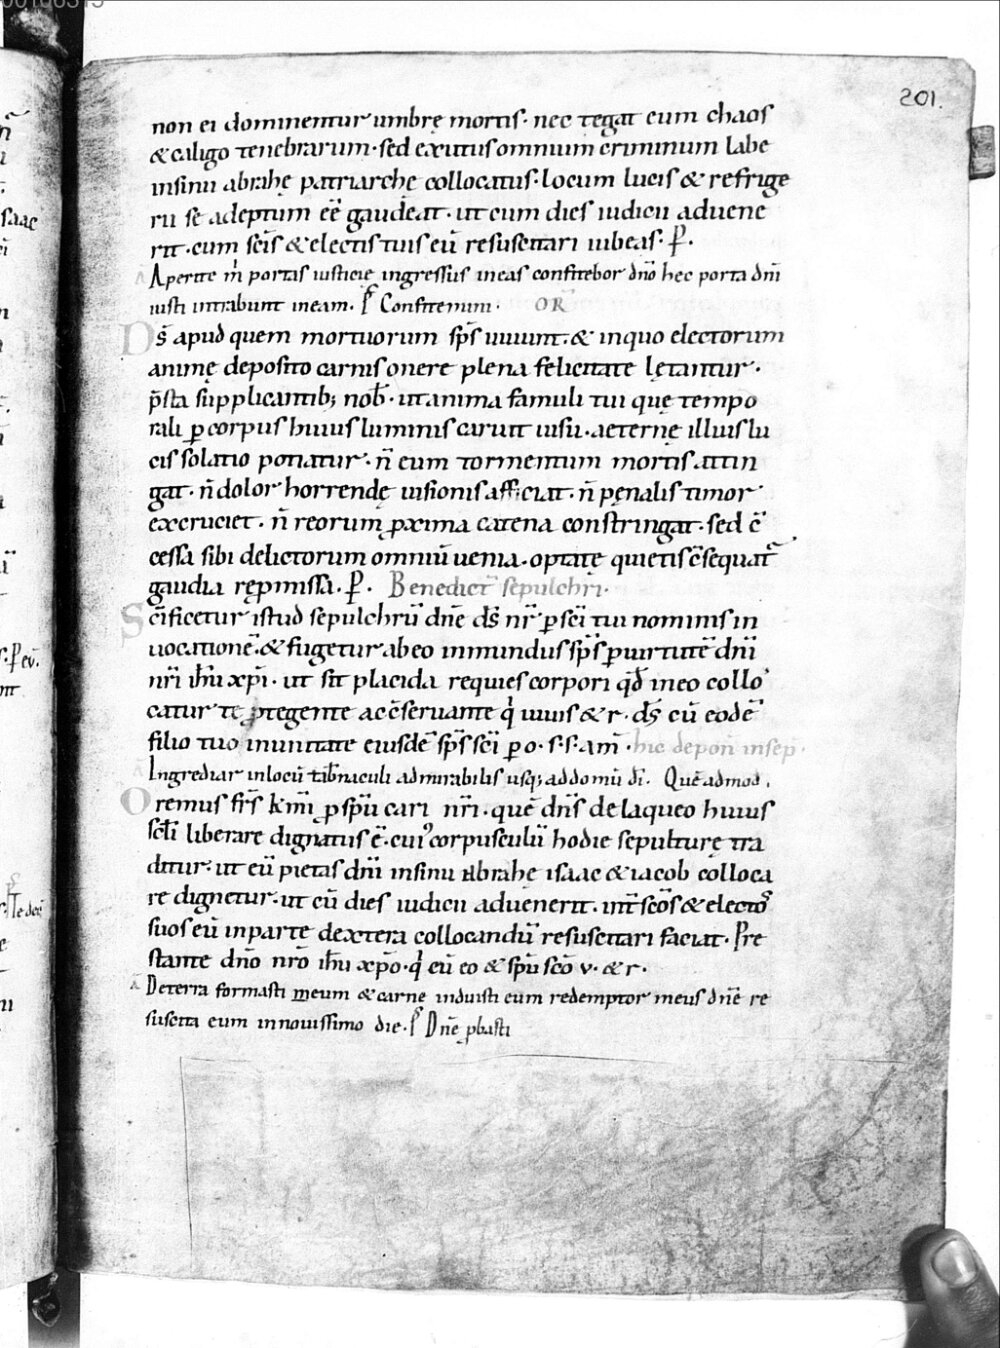 201.
non ei dominentur umbrę mortis· nec tegat eum chaos
& caligo tenebrarum· sed exutus omnium criminum labe
insinu abrahę patriarchę collocatus· locum lucis & refrige
rii se adeptum eē gaudeat· ut cum dies iudicii aduene
rit· cum scīs & electis tuis eū resuscitari iubeas· P̄.
A Aperite m̄ portas iusticię ingressus ineas confitebor dn̄o hec porta dn̄i
iusti intrabunt ineam. P̄s Confitemini· OR̄
Ds̄ apud quem mortuorum sp̄s uiuunt· & inquo electorum
animę deposito carnis onere plena felicitate lętantur·
p̄sta supplicantib; nob̄· ut anima famuli tui quę tempo
rali ꝑ corpus huius luminis caruit uisu· aeternę illius lu
cis solatio potiatur· n̄ eum tormentum mortis attin
gat· n̄ dolor horrendę uisionis afficiat· n̄ pęnalis timor
excruciet· n̄ reorum ꝓxima catena constringat· sed c̄
cessa sibi delictorum omniū uenia· optatę quietis c̄sequat᷑
gaudia rępmissa· P̄. Benedict̄ sepulchri·
Sc̄ificetur istud sepulchrū dn̄e ds̄ nr̄ ꝑ sc̄i tui nominis in
uocationē· & fugetur abeo inmundus sp̄s ꝑ uirtutē dn̄i
nr̄i ih̄u xp̄i· ut sit placida requies corpori qd̄ ineo collo
catur te ꝓtegente ac c̄seruante q̄ uiuis & r· ds̄ cū eodē
filio tuo inunitate eiusdē sp̄s sc̄i ꝑ o· s· s· am̄· hic depon̄ insep̄·
A Ingrediar inlocū tab̄naculi admirabilis usq; addomū dī. Quēadmod.
Oremus frs̄ km̄i ꝓ sp̄u cari nr̄i· quē dn̄s delaqueo huius
scl̄i liberare dignatus ē· cui᷒ corpusculū hodie sepulturę tra
ditur· ut eū pietas dn̄i insinu abrahę isaac & iacob colloca
re dignetur· ut cū dies iudicii aduenerit· int̄ scōs & electos
suos eū inparte dextera collocandū resuscitari faciat· Pre
stante dn̄o nr̄o ih̄u xp̄o· q̄ cū eo & sp̄u scō v· & r·
A Deterra formasti meum & carne induisti eum redemptor meus dn̄e re
suscita eum innouissimo die· P̄s Dn̄e ꝓbasti